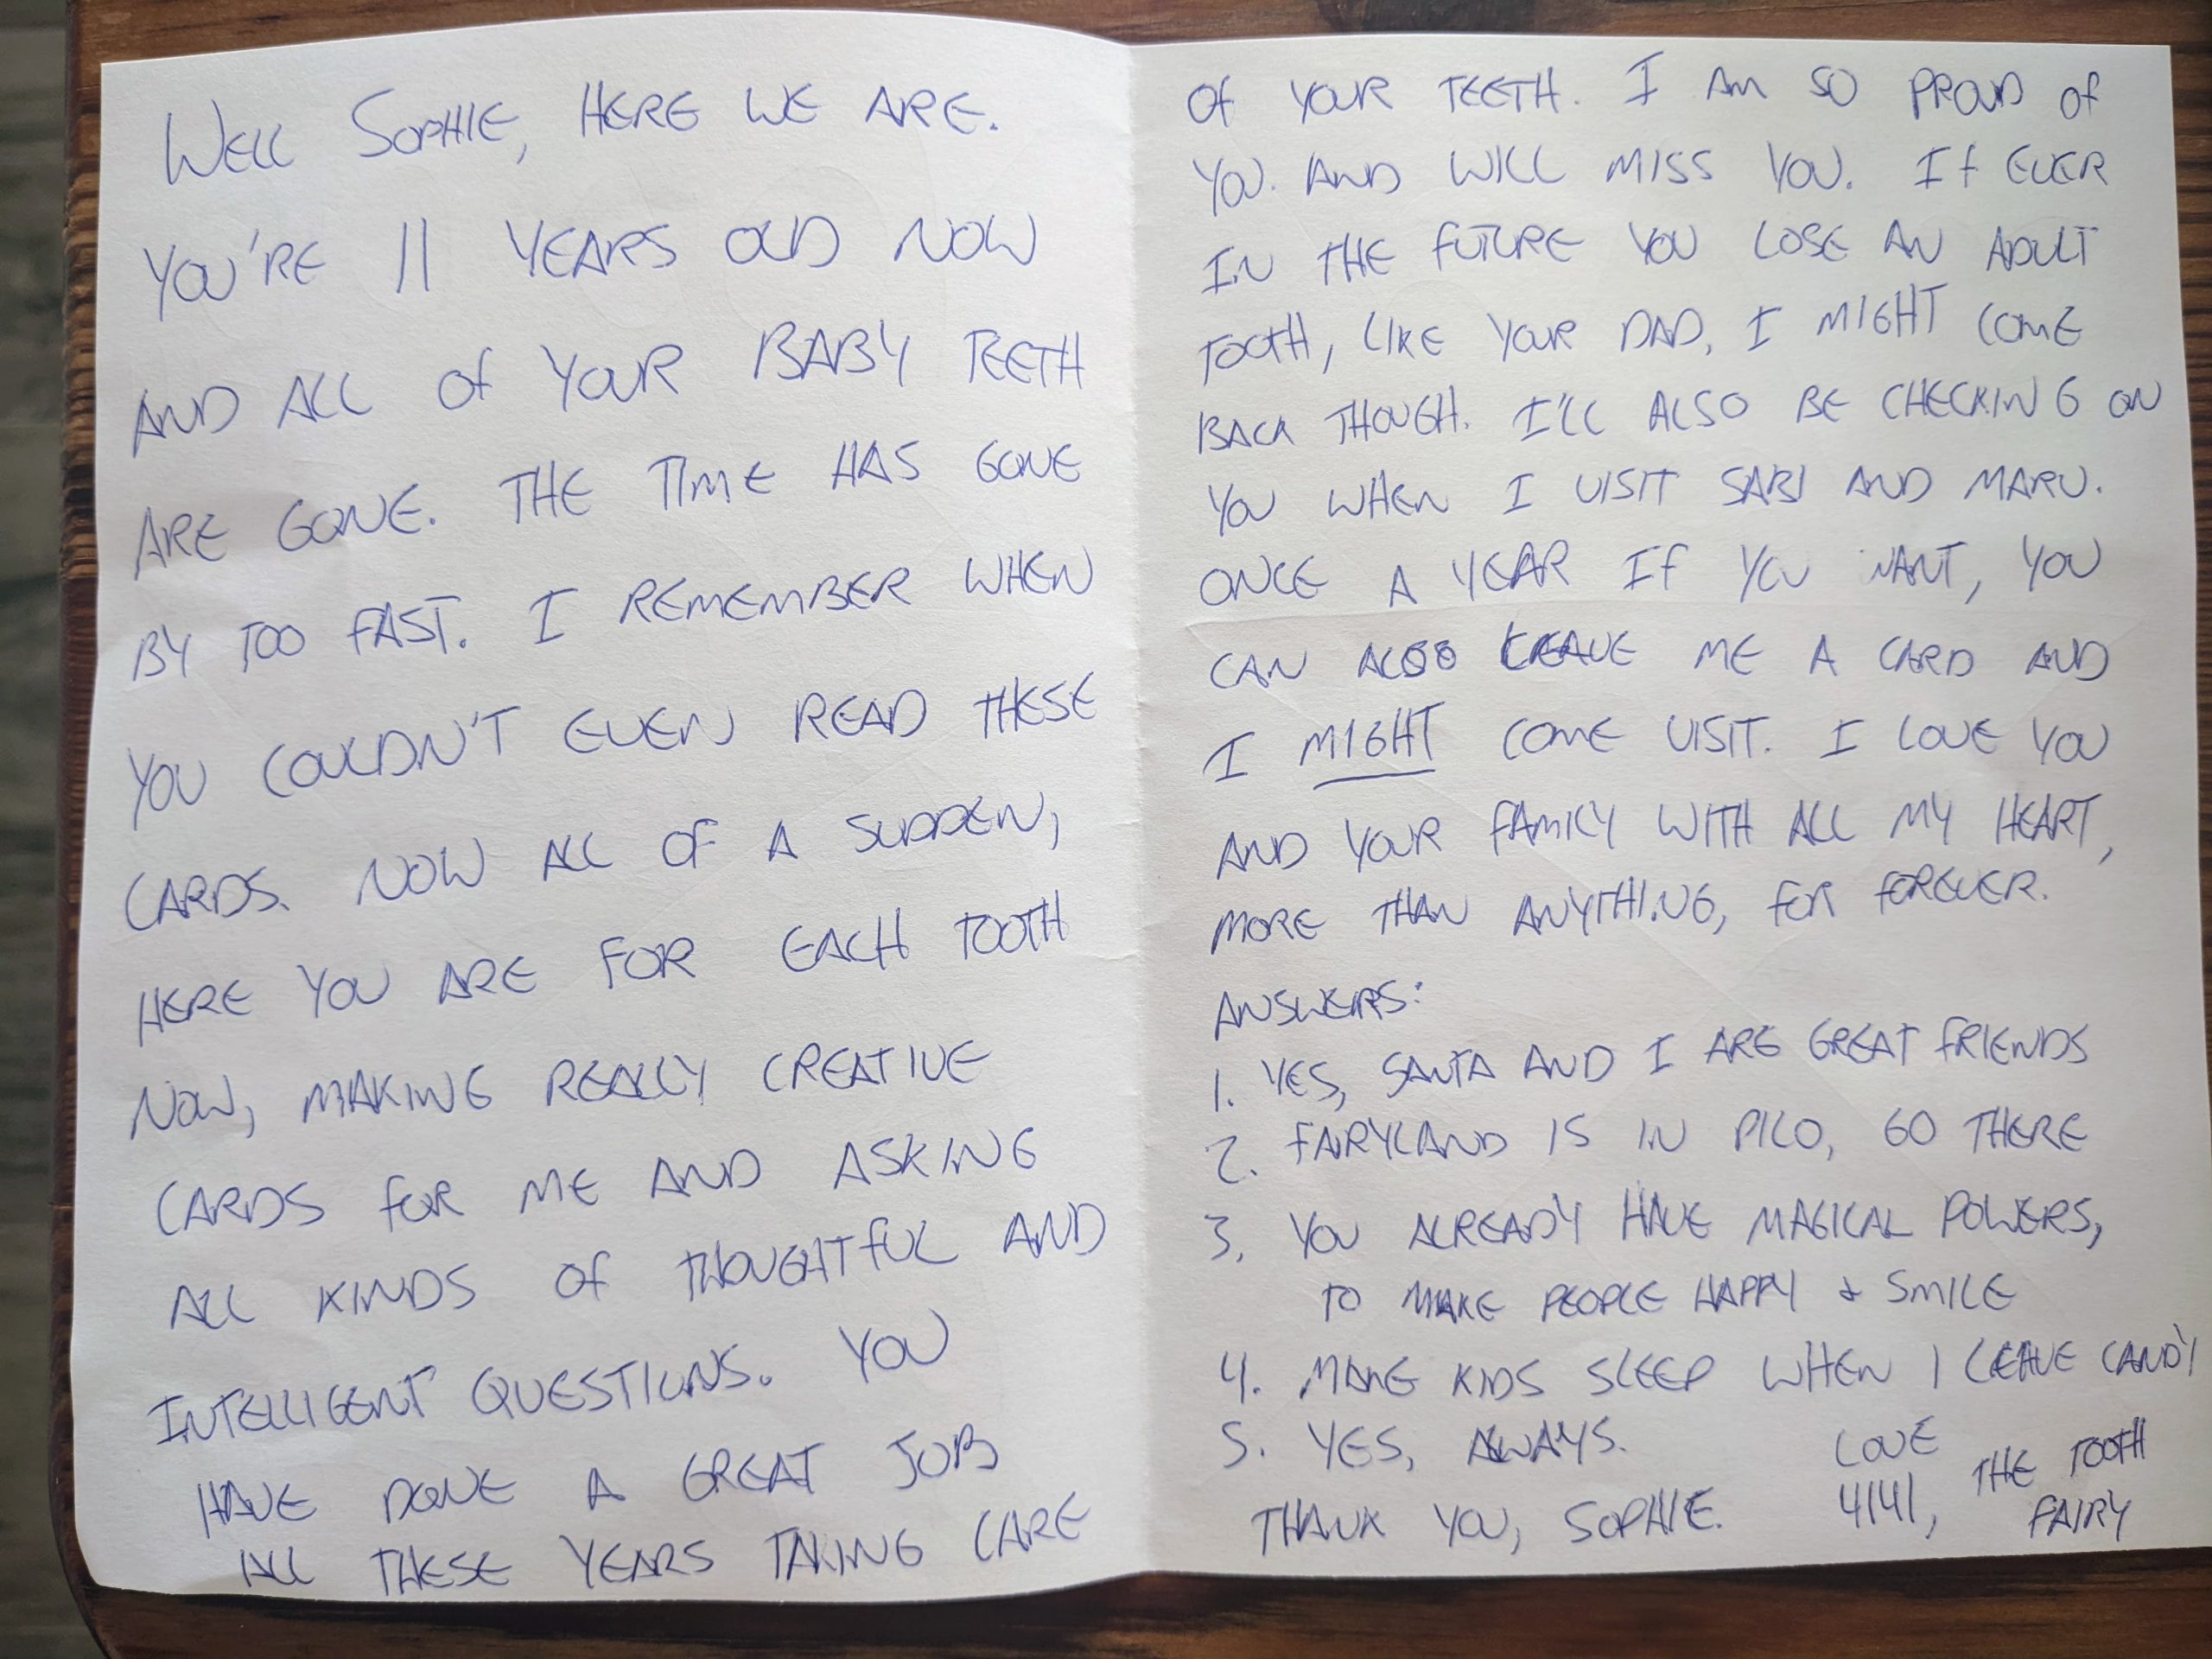 WELL SOPHIE, HERE WE ARE.
YOU'RE 11 YEARS OLD NOW
AND ALL OF YOUR BABY TEETH
ARE GONE. THE TIME HAS GONE
BY TOO FAST. I REMEMBER WHEN
YOU COULDN'T EVEN READ THESE
CARDS. NOW ALL OF A SUDDEN,
HERE YOU ARE FOR EACH TOOTH
NOW, MAKING REALLY CREATIVE
CARDS FOR ME AND ASKING
ALL KINDS OF THOUGHTFUL AND
INTELLIGENT QUESTIONS. YOU
HAVE DONE A GREAT JOB
ALL THESE YEARS TAKING CARE
OF YOUR TEETH. I AM SO PROUD OF
YOU. AND WILL MISS YOU. IF EVER
IN THE FUTURE YOU LOSE AN ADULT
TOOTH, LIKE YOUR DAD, I MIGHT COME
BACK THOUGH. I'LL ALSO BE CHECKING ON
YOU WHEN I VISIT SABI AND MARU.
ONCE A YEAR IF YOU WANT, YOU
CAN ALSO LEAVE ME A CARD AND
I MIGHT COME VISIT. I LOVE YOU
AND YOUR FAMILY WITH ALL MY HEART,
MORE THAN ANYTHING, FOR FOREVER.
ANSWERS:
1. YES, SANTA AND I ARE GREAT FRIENDS
2. FAIRYLAND IS IN PILO, GO THERE
3. YOU ALREADY HAVE MAGICAL POWERS,
TO MAKE PEOPLE HAPPY & SMILE
4. MAKE KIDS SLEEP WHEN I LEAVE CANDY
5. YES, ALWAYS.
THANK YOU, SOPHIE.
LOVE
4141, THE TOOTH
FAIRY